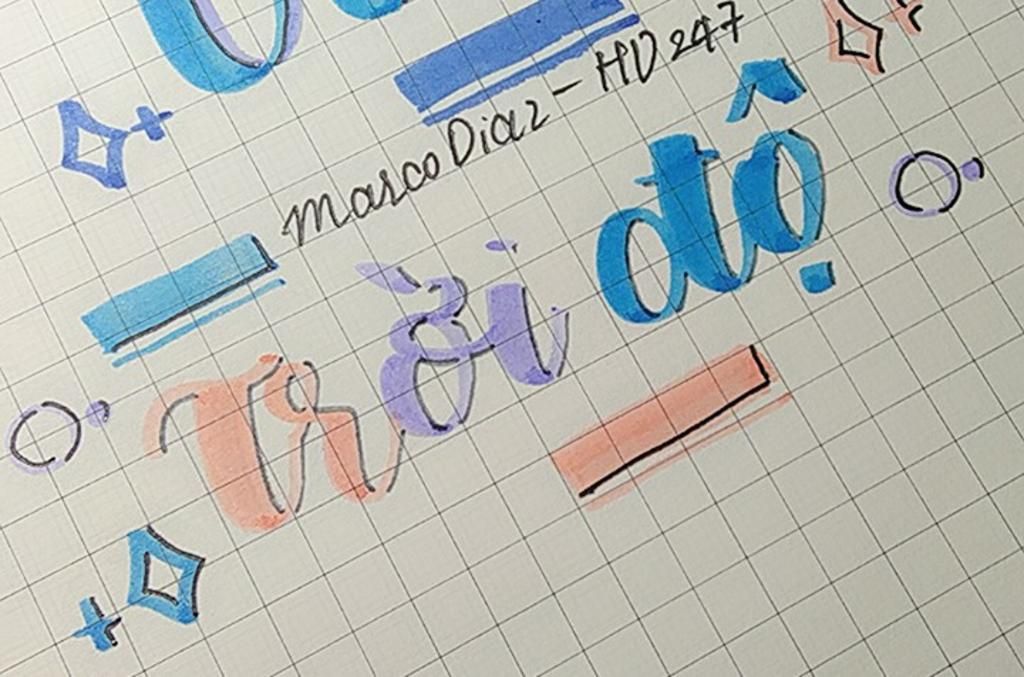 Marco Diaz - HD 247
trời độ